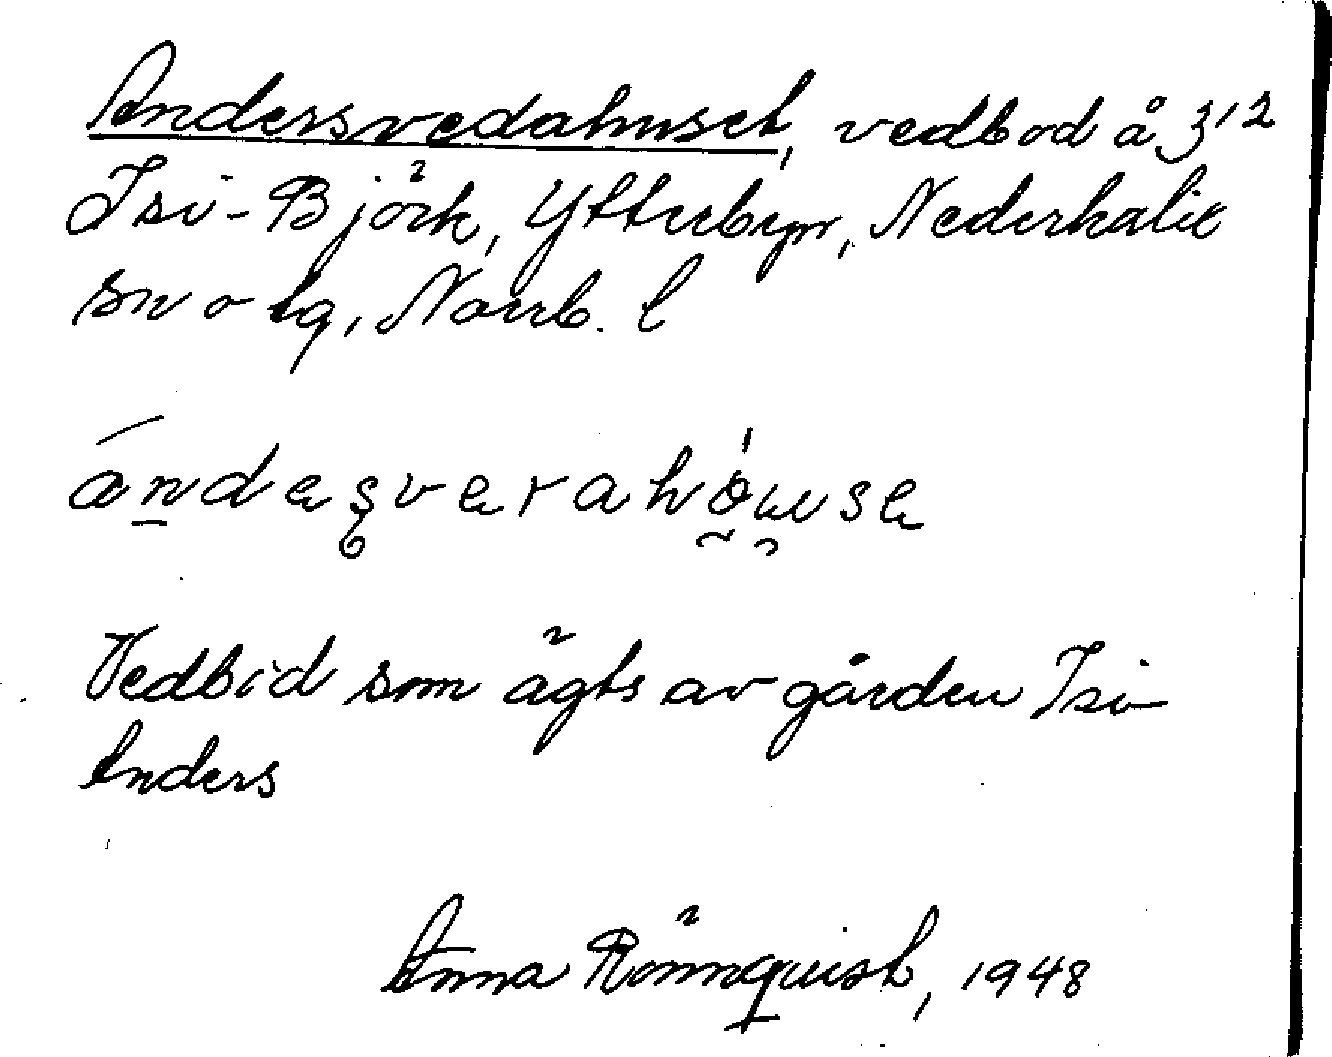 Andersvedahuset, vedbod å 3¹²
Isi-Björk, Ytterbyn, Nederkalix
sn o tg, Norrb. l
Vedbod som ägts av gården Isi-
Anders
Anna Rönnquist, 1948